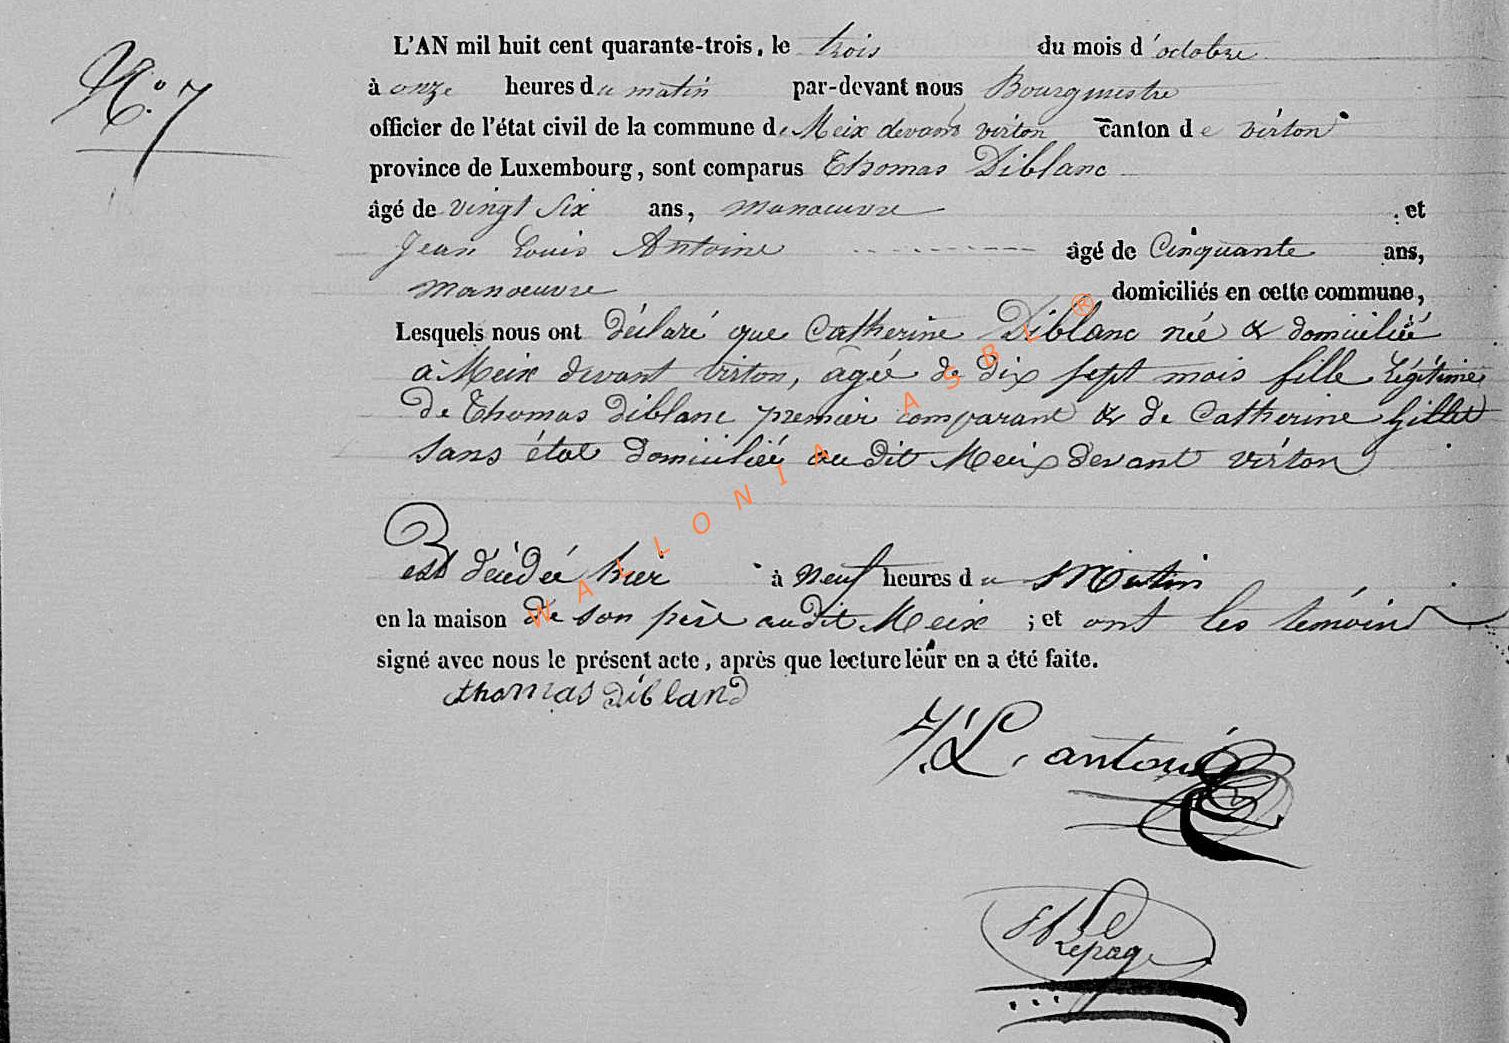 N.º 7
L'AN mil huit cent quarante-trois, le trois du mois d'octobre
à onze heures du matin par-devant nous Bourgmestre
officier de l'état civil de la commune de Meix devant virton canton de virton
province de Luxembourg, sont comparus Thomas Diblanc
âgé de vingt six ans, manoeuvre et
Jean Louis Antoine âgé de Cinquante ans,
manoeuvre domiciliés en cette commune,
Lesquels nous ont déclaré que Catherine Diblanc née & domiciliée
à Meix devant virton, agée de dix sept mois fille légitime
de Thomas Diblanc premier comparant & de Catherine Gillet
sans état domiciliée au dit Meix devant virton
est décédée hier à neuf heures du Matin
en la maison de son père audit Meix ; et ont les témoins
signé avec nous le présent acte, après que lecture leur en a été faite.
thomas Dibland
J. L. antoine
Lepage
WALLONIA ASBL ®